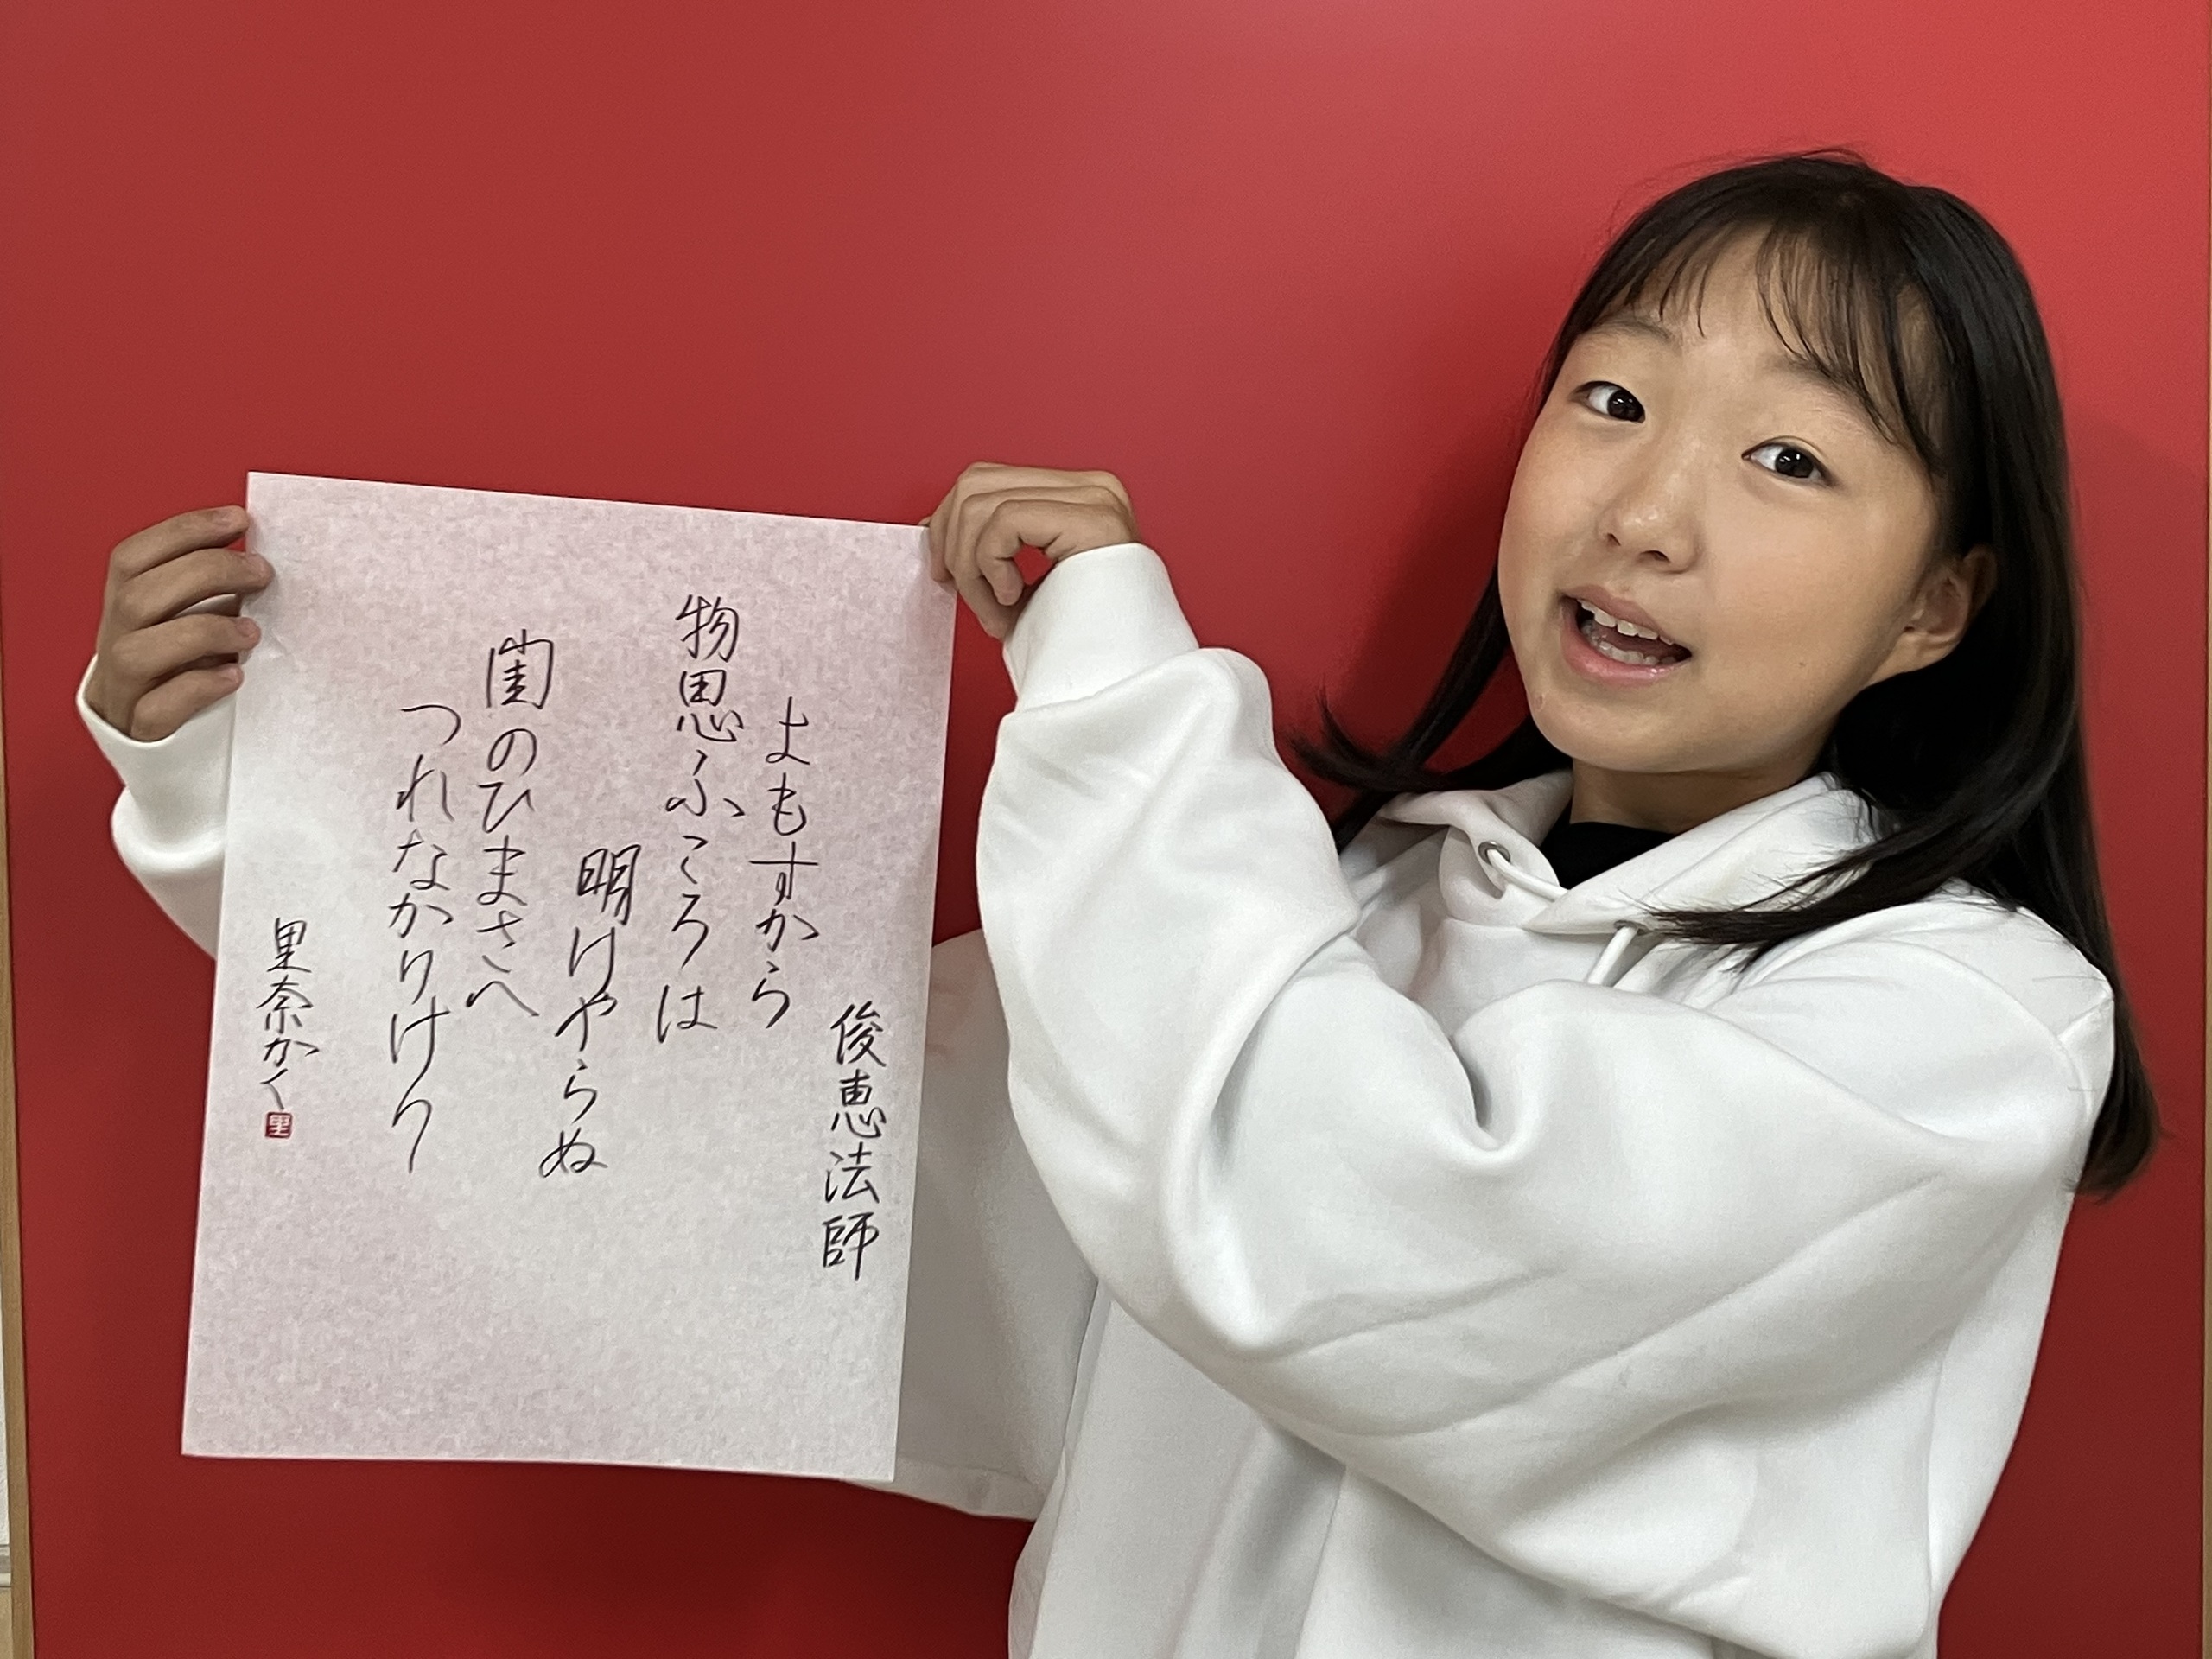 俊恵法師
よもすから
物思ふころは
明けやらぬ
閨のひまさへ
つれなかりけり
里奈かく
里